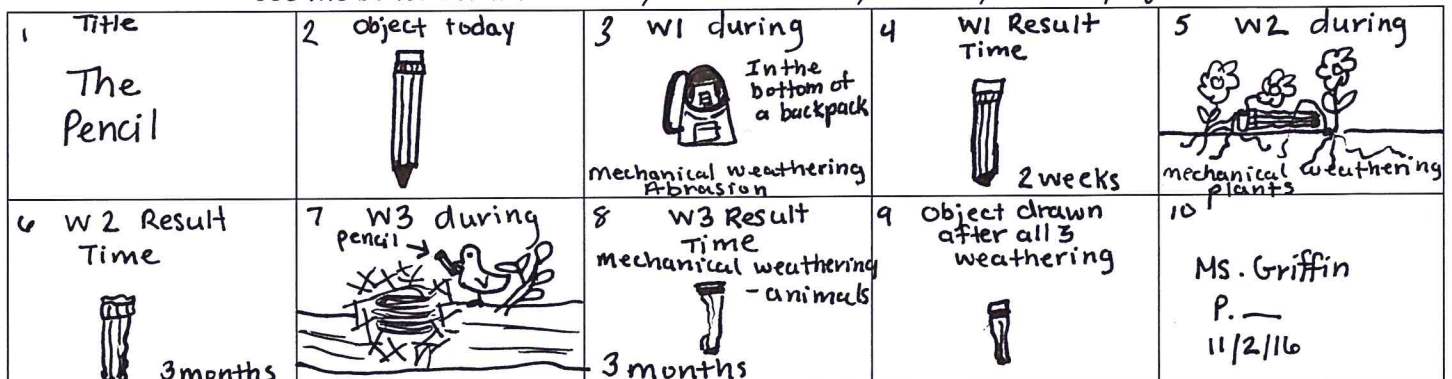 1 Title
The
Pencil
2 Object today
3 W1 during
In the
bottom of
a backpack
mechanical weathering
Abrasion
4 W1 Result
Time
2 weeks
5 W2 during
mechanical weathering
plants
6 W2 Result
Time
3 months
7 W3 during
pencil
8 W3 Result
Time
mechanical weathering
- animals
3 months
9 Object drawn
after all 3
weathering
10
Ms. Griffin
P. __
11/2/16